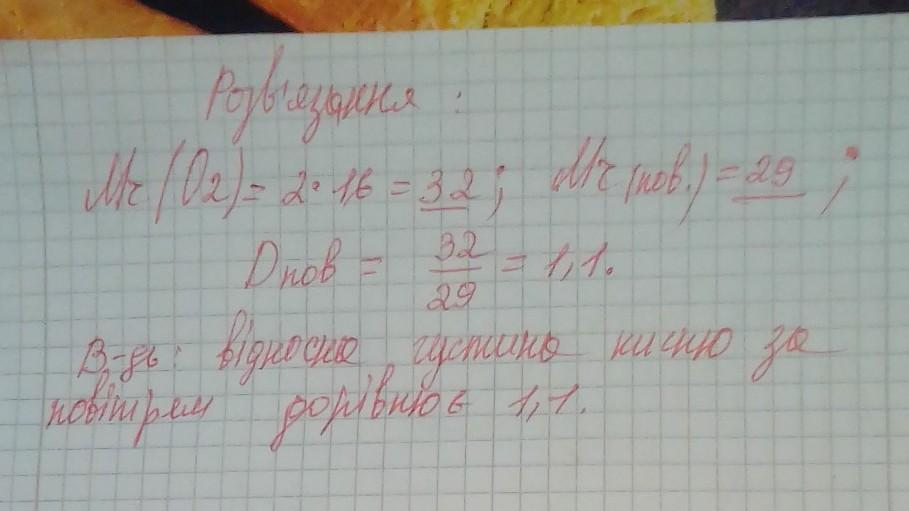 Розв'язання :
Mr (O2) = 2 · 16 = 32 ; Mr (пов.) = 29 ;
Dпов = 32/29 = 1,1.
В-дь: відносна густина кисню за
повітрям дорівнює 1,1.